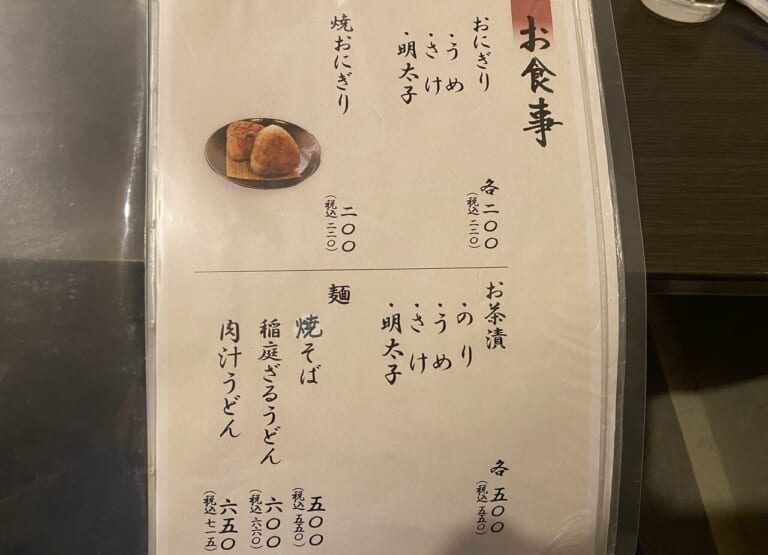 お食事
おにぎり
・うめ
・さけ
・明太子
各二〇〇
(税込 二二〇)
焼おにぎり
二〇〇
(税込 二二〇)
お茶漬
・のり
・うめ
・さけ
・明太子
各五〇〇
(税込 五五〇)
麺
焼そば
五〇〇
(税込 五五〇)
稲庭ざるうどん
六〇〇
(税込 六六〇)
肉汁うどん
六五〇
(税込 七一五)